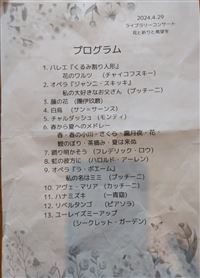 2024.4.29
ライブラリーコンサート
花と祈りと希望を
プログラム
1. バレエ『くるみ割り人形』
花のワルツ （チャイコフスキー）
2. オペラ『ジャンニ・スキッキ』
私の大好きなお父さん （プッチーニ）
3. 藤の花 （團伊玖磨）
4. 白鳥 （サン＝サーンス）
5. チャルダッシュ （モンティ）
6. 春から夏へのメドレー
春・春の小川・さくら・朧月夜・花・
鯉のぼり・茶摘み・夏は来ぬ
7. 踊り明かそう （フレデリック・ロウ）
8. 虹の彼方に （ハロルド・アーレン）
9. オペラ『ラ・ボエーム』
私の名はミミ （プッチーニ）
10. アヴェ・マリア （カッチーニ）
11. ハナミズキ （一青窈）
12. リベルタンゴ （ピアソラ）
13. ユーレイズミーアップ
（シークレット・ガーデン）